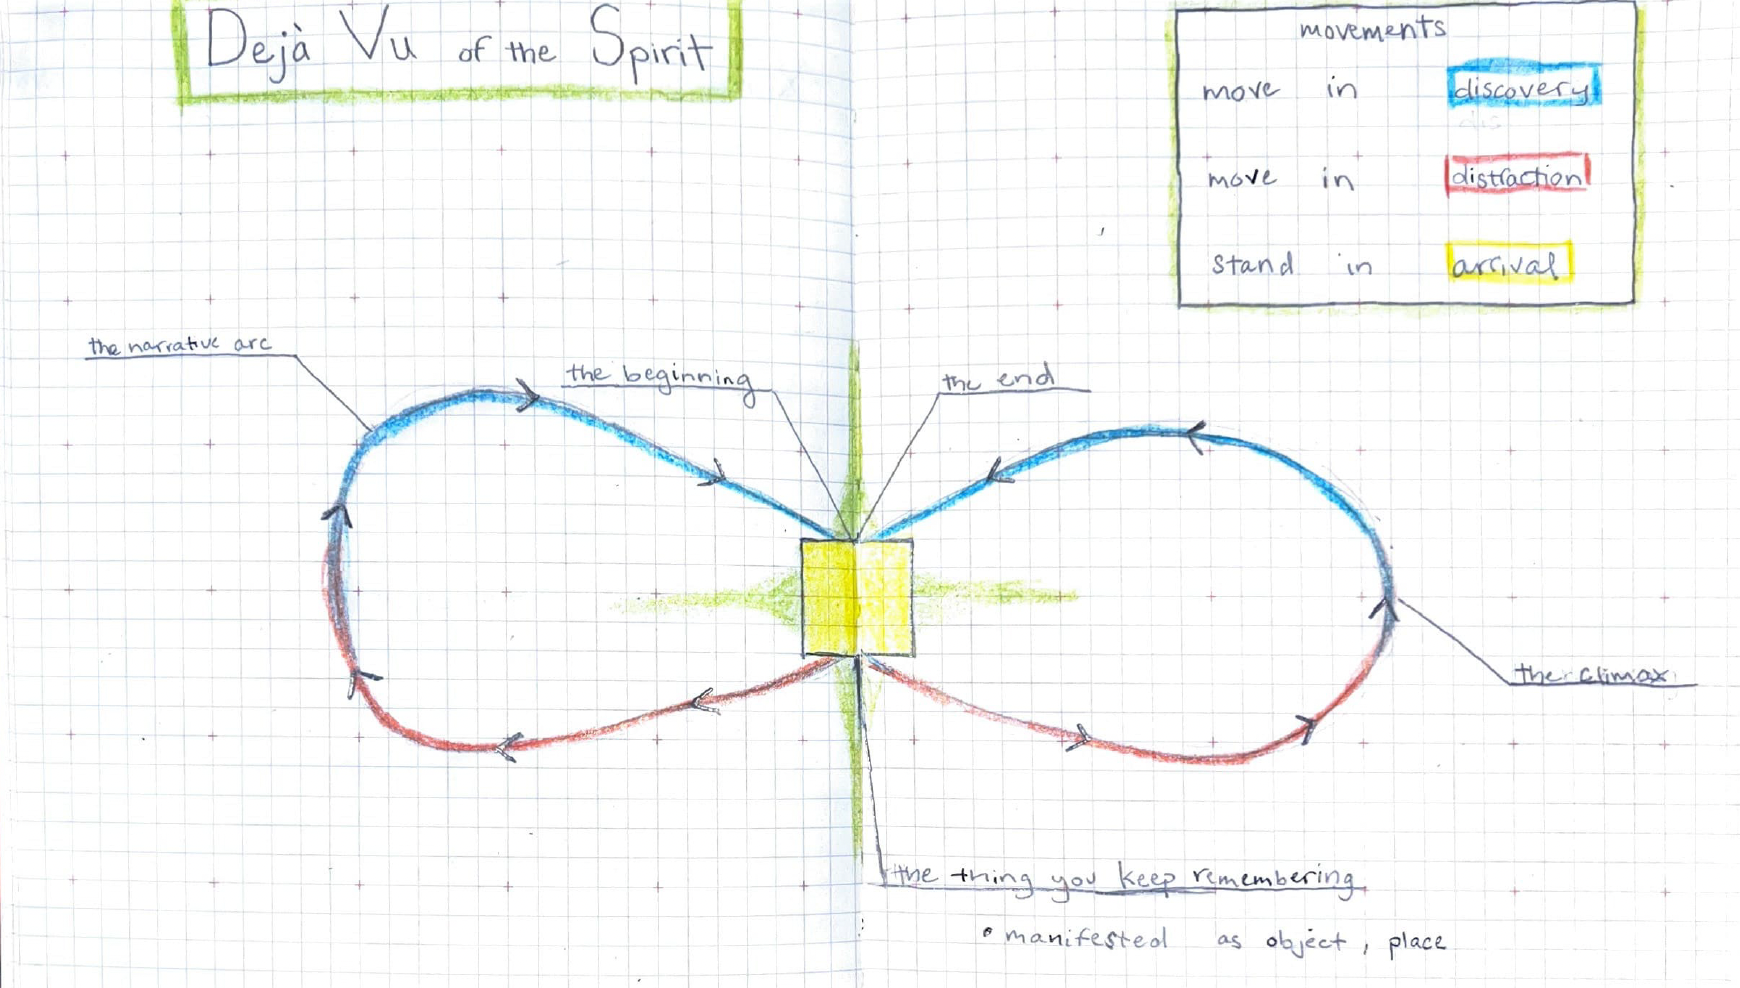 Dejà Vu of the Spirit
movements
move in discovery
dis
move in distraction
stand in arrival
the narrative arc
the beginning
the end
the climax
the thing you keep remembering
• manifested as object, place